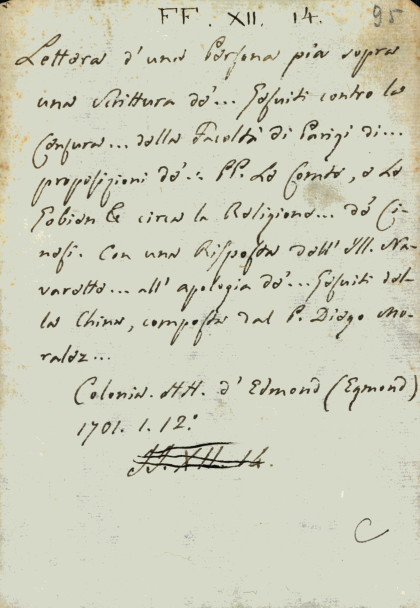 FF. XII. 14.
95
Lettera d'una Persona pia sopra
una Scrittura de'... Gesuiti contro la
Censura... della Facoltà di Parigi di...
proposizioni de'... PP. Le Comte, e Le
Gobien &c circa la Religione... de' Ci-
nesi. Con una Risposta dell' Ill. Na-
varette... all' apologia de'... Gesuiti del-
la China, composta dal P. Diego Mo-
ralez...
Colonia. HH. d' Edmond (Egmond)
1701. 1. 12.°
JJ. XII. 14.
C